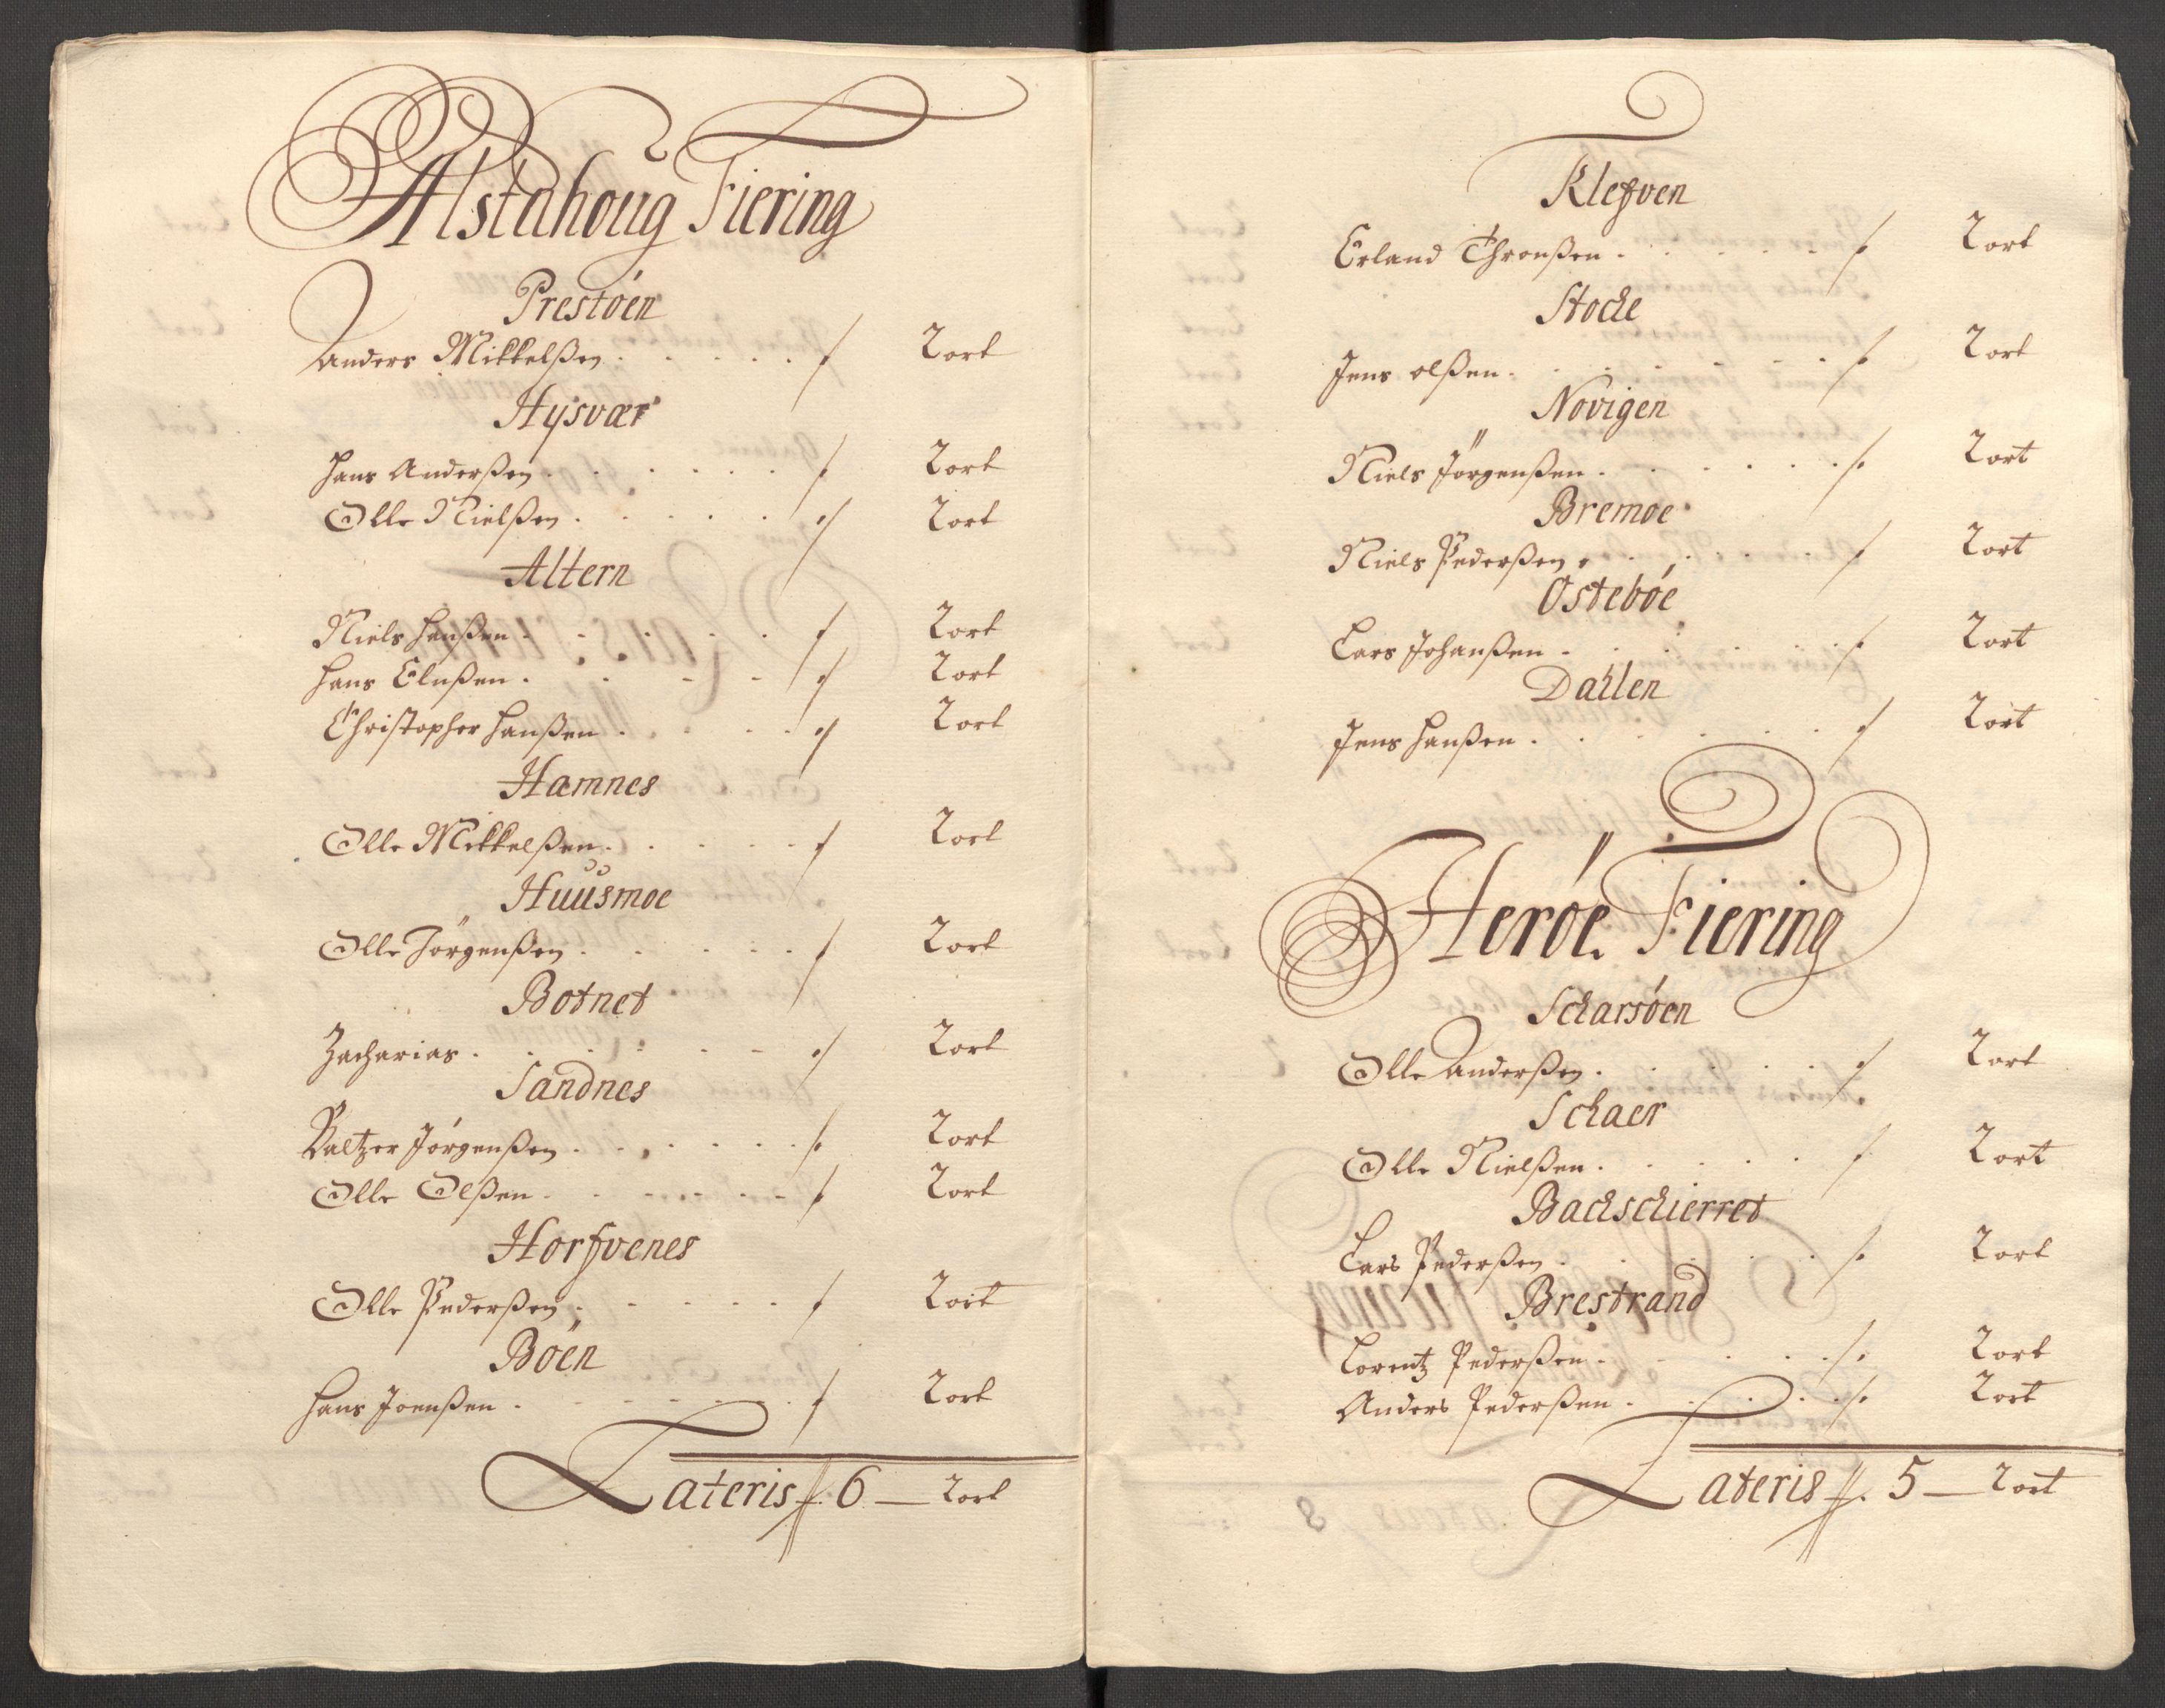 Alstahoug Fiering
Prestöen
Anders Mikkelßen . . . . . / 2 ort
Hysvær
Hans Anderßen . . . . . / 2 ort
Olle Nielßen . . . . . / 2 ort
Altern
Niels Hanßen . . . . . / 2 ort
Hans Elußen . . . . / 2 ort
Christopher Hanßen . . . . / 2 ort
Hamnes
Olle Mikkelßen . . . . . / 2 ort
Huusmoe
Olle Jörgenßen . . . . . / 2 ort
Botnet
Zacharias . . . . . . / 2 ort
Sandnes
Baltzer Jörgenßen . . . . . / 2 ort
Olle Olßen . . . . . . / 2 ort
Horfvenes
Olle Pederßen . . . . . / 2 ort
Böen
Hans Joenßen . . . . . . / 2 ort
Lateris 6 — 2 ort
Klefven
Erland Thronßen . . . . . / 2 ort
Stocke
Jens olßen . . . . . . / 2 ort
Novigen
Niels Jörgenßen . . . . . / 2 ort
Bremoe
Niels Pederßen . . . . . / 2 ort
Osteböe
Lars Johanßen . . . . . / 2 ort
Dahlen
Jens Hanßen . . . . . . / 2 ort
Heröe Fiering
Scharsöen
Olle Anderßen . . . . . / 2 ort
Schaer
Olle Nielßen . . . . . / 2 ort
Backschierret
Lars Pederßen . . . . . / 2 ort
Brestrand
Lorentz Pederßen . . . . . / 2 ort
Anders Pederßen . . . . . / 2 ort
Lateris 5 — 2 ort